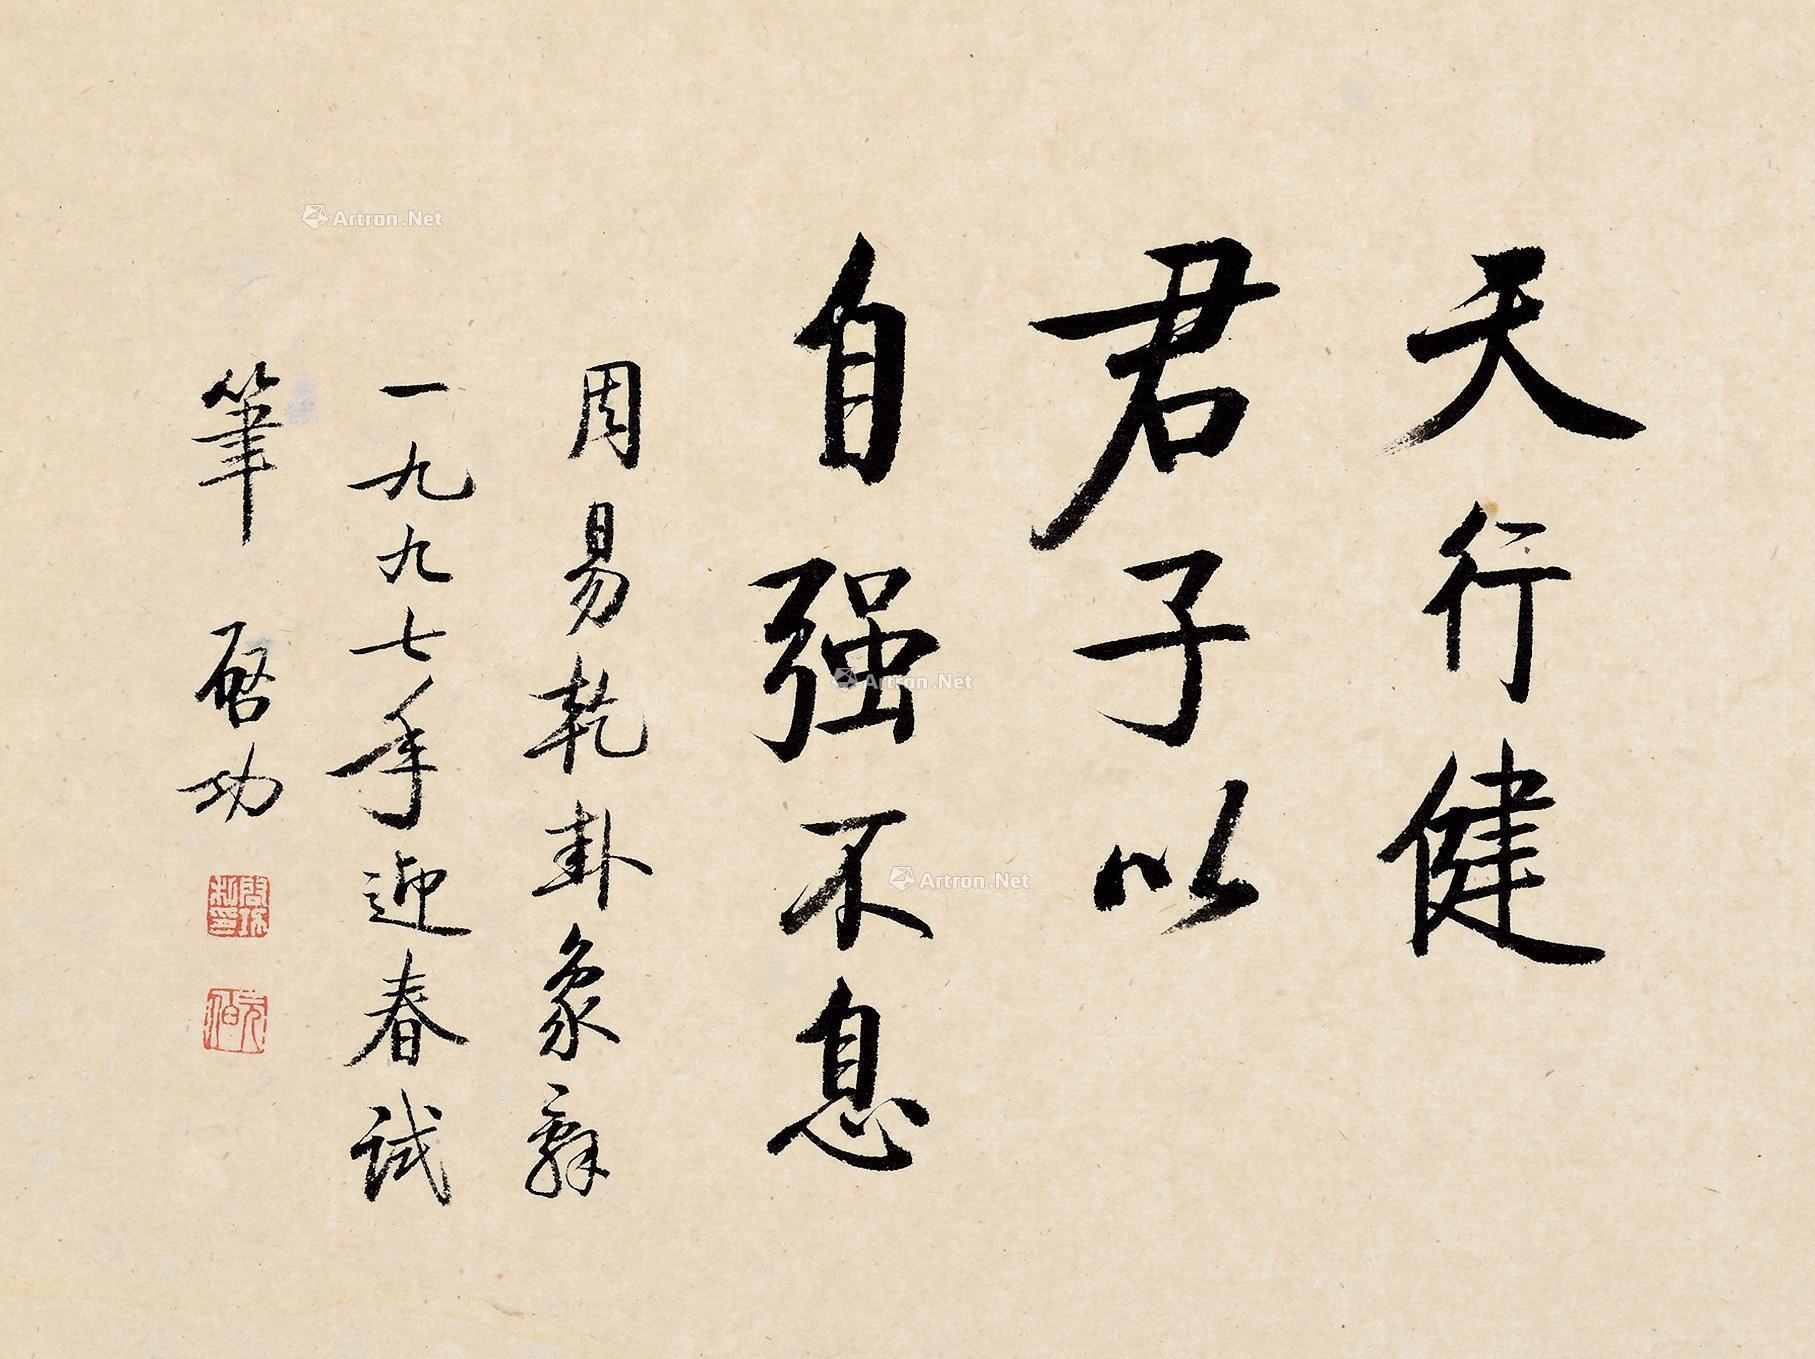 天行健
君子以
自强不息
周易乾卦象辞
一九九七年迎春試
筆 启功
Artron.Net
Artron.Net
Artron.Net